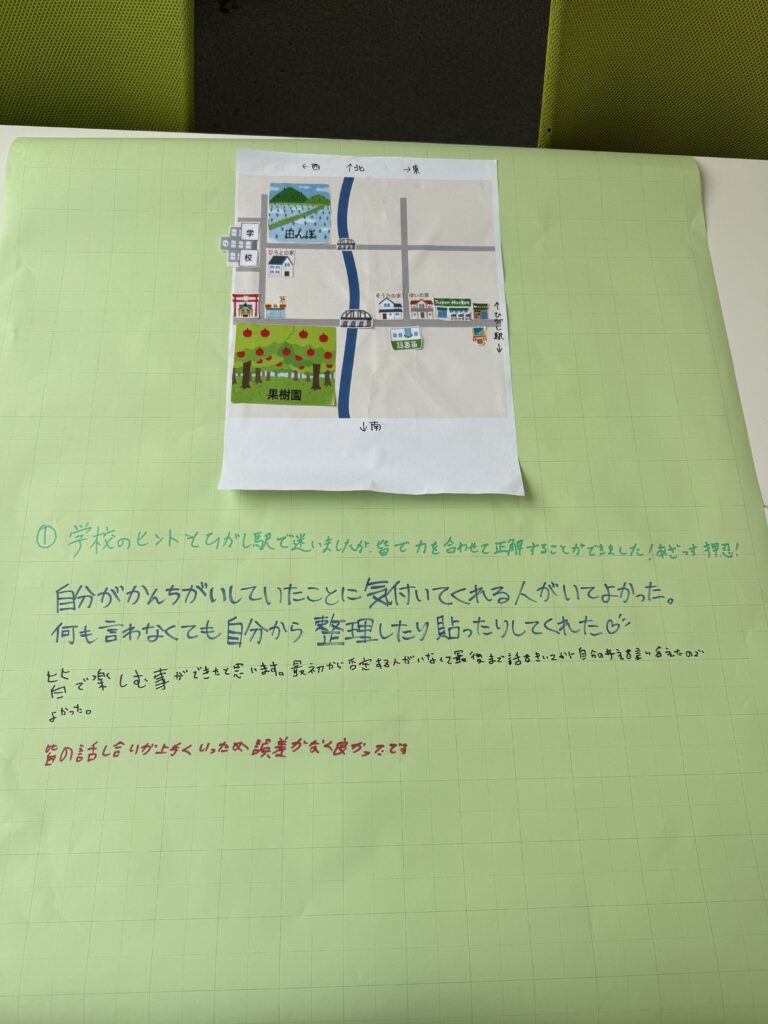 ←西 ↑北 →東
田んぼ
学
校
ひろとの家
そうたの家
ゆいの家
Super Market
図書館
↑ひがし駅↓
果樹園
↓南
① 学校のヒントとひがし駅で迷いましたが、皆で力を合わせて正解することができました!あざっす 押忍!
自分がかんちがいしていたことに気付いてくれる人がいてよかった。
何も言わなくても自分から整理したり貼ったりしてくれた♡
皆で楽しむ事ができたと思います。最初から否定する人がいなくて最後まで話をきいてから自分の考えを言い合えたので
よかった。
皆の話し合いが上手くいったため誤差がなく良かったです